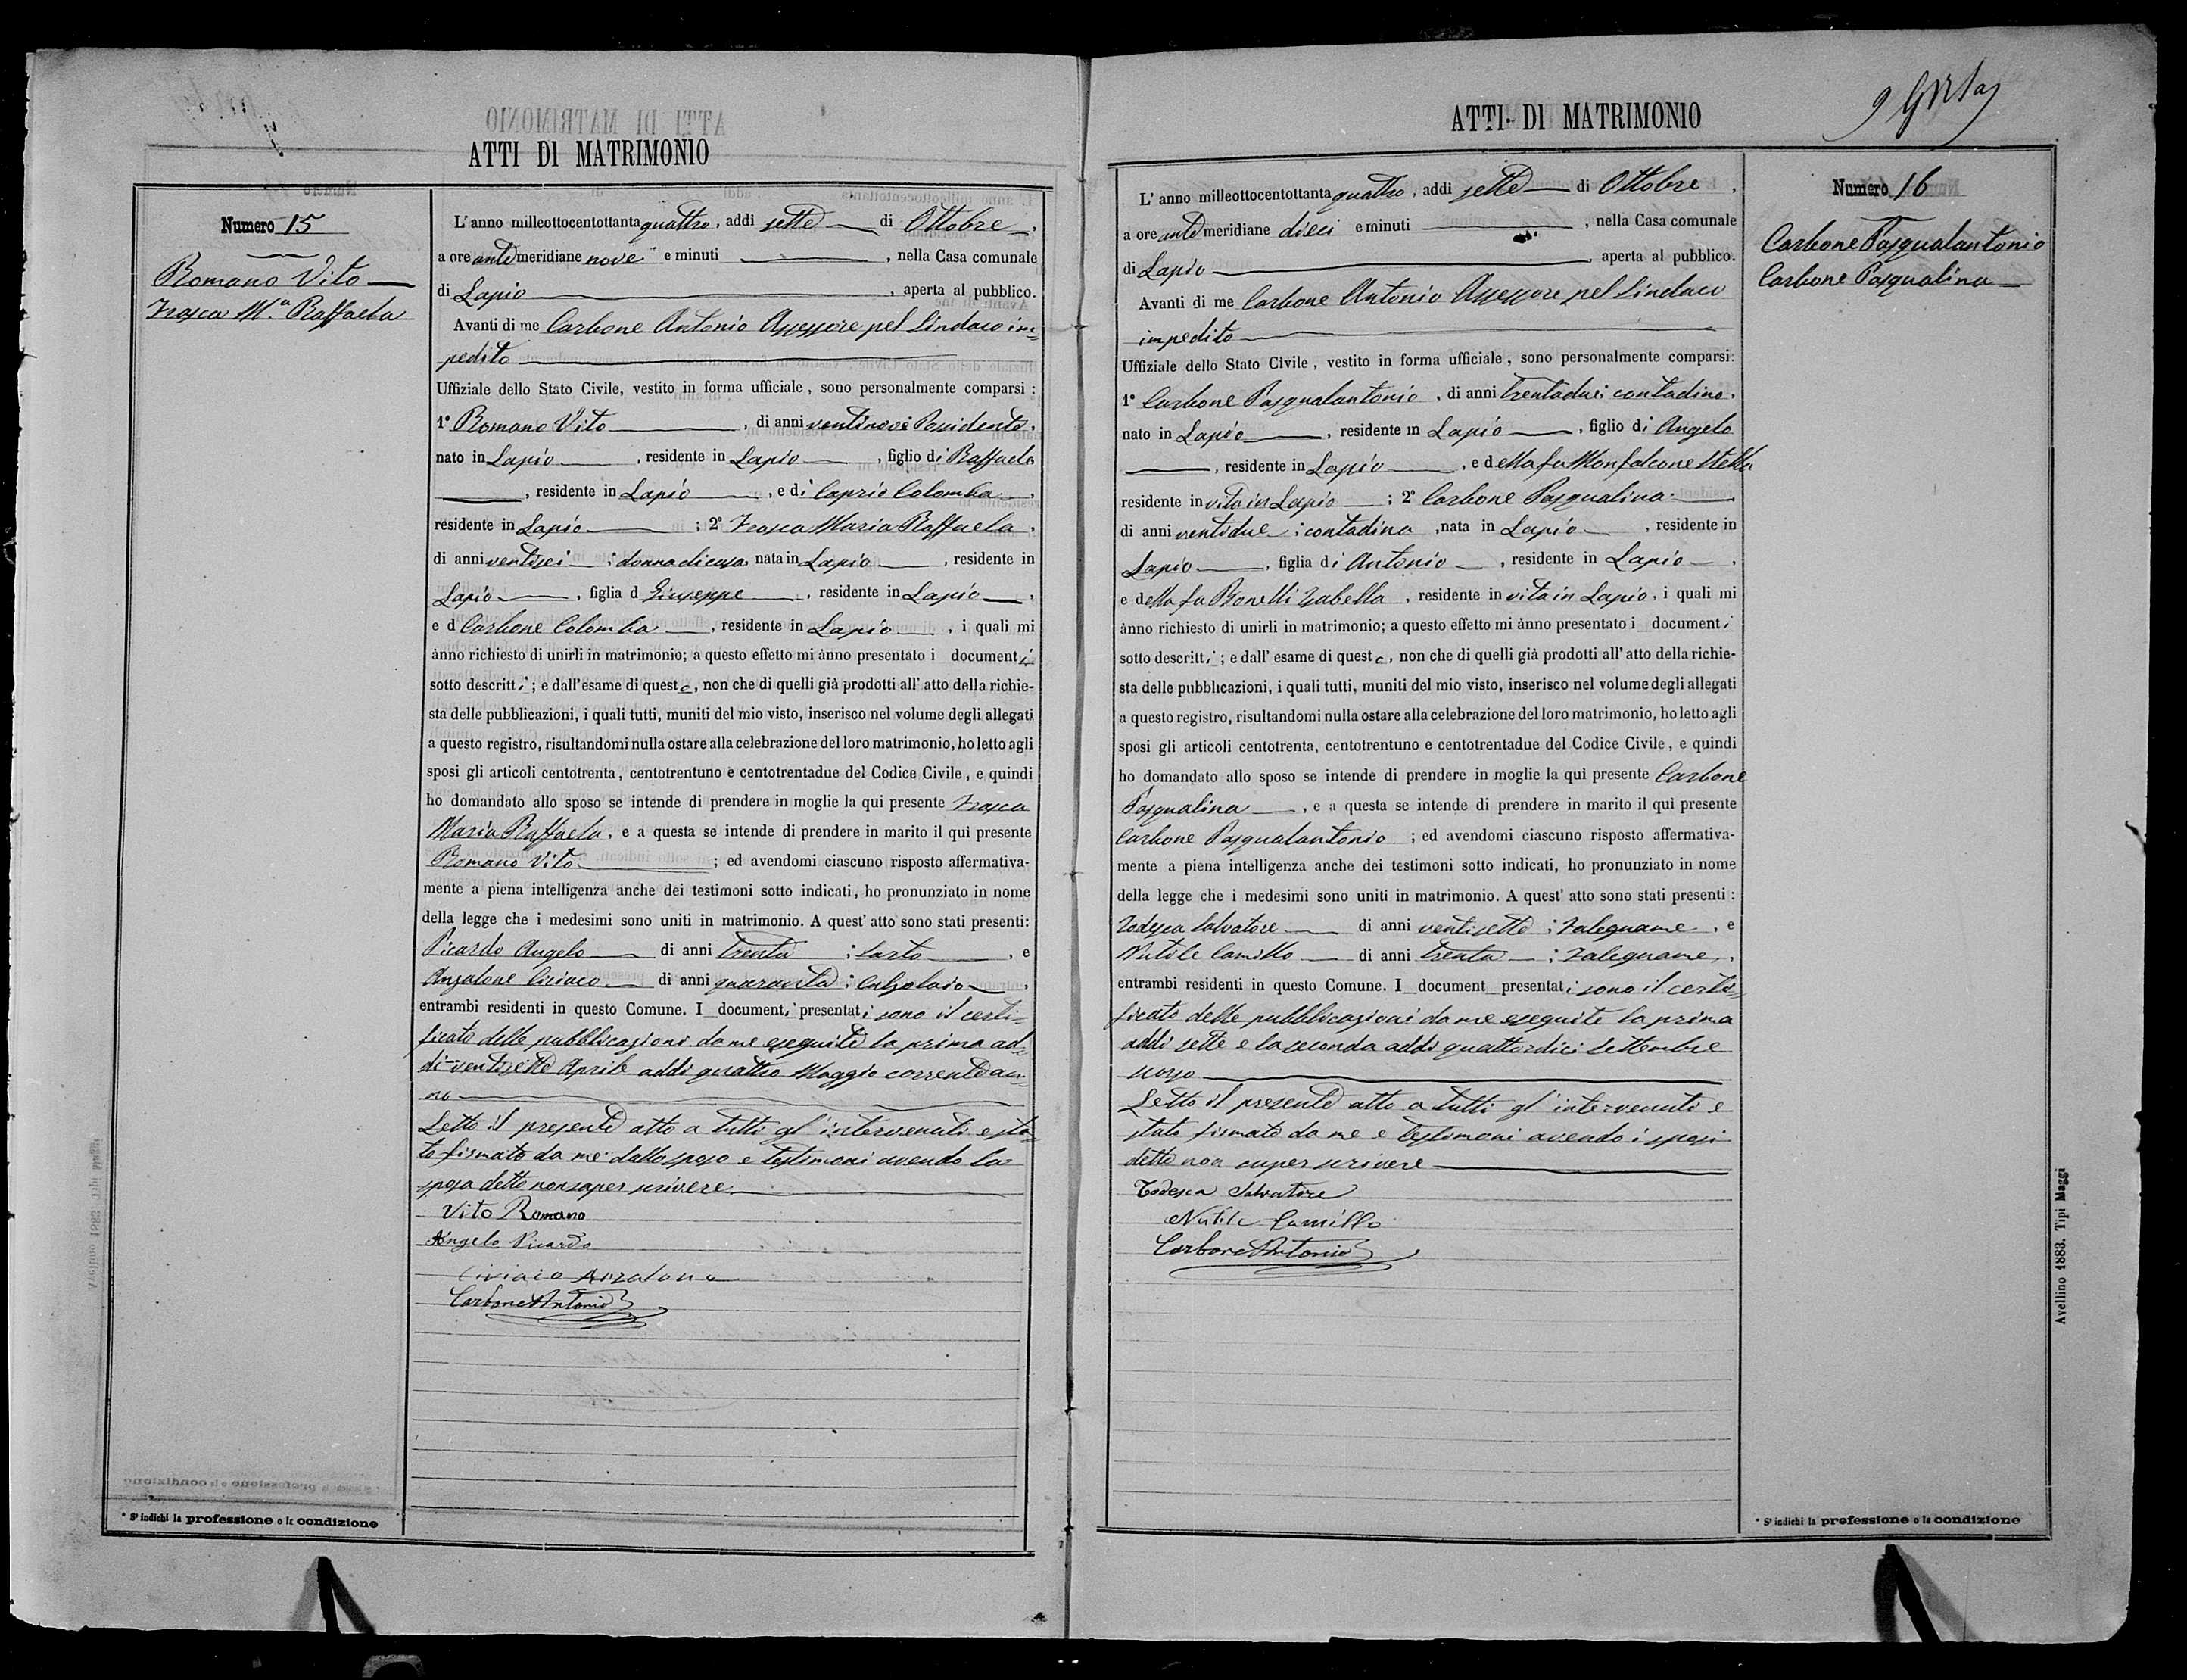 ATTI DI MATRIMONIO
Numero 15
Romano Vito
Frasca M.a Raffaela
L' anno milleottocentottantaquattro, addì sette di Ottobre,
a ore antemeridiane nove e minuti , nella Casa comunale
di Lapio , aperta al pubblico.
Avanti di me Carbone Antonio Assessore pel Sindaco im=
pedito
Uffiziale dello Stato Civile, vestito in forma ufficiale, sono personalmente comparsi:
1° Romano Vito , di anni ventinove Possidente,
nato in Lapio , residente in Lapio , figlio di Raffaele
, residente in Lapio , e di Caprio Colomba ,
residente in Lapio ; 2° Frasca Maria Raffaela,
di anni ventisei ; donna di casa, nata in Lapio , residente in
Lapio , figlia d Giuseppe , residente in Lapio ,
e d Carbone Colomba , residente in Lapio , i quali mi
ànno richiesto di unirli in matrimonio; a questo effetto mi ànno presentato i documenti
sotto descritti; e dall'esame di queste, non che di quelli già prodotti all' atto della richie-
sta delle pubblicazioni, i quali tutti, muniti del mio visto, inserisco nel volume degli allegati
a questo registro, risultandomi nulla ostare alla celebrazione del loro matrimonio, ho letto agli
sposi gli articoli centotrenta, centotrentuno e centotrentadue del Codice Civile, e quindi
ho domandato allo sposo se intende di prendere in moglie la qui presente Frasca
Maria Raffaela, e a questa se intende di prendere in marito il qui presente
Romano Vito ; ed avendomi ciascuno risposto affermativa-
mente a piena intelligenza anche dei testimoni sotto indicati, ho pronunziato in nome
della legge che i medesimi sono uniti in matrimonio. A quest' atto sono stati presenti:
Picardo Angelo di anni trenta ; Sarto , e
Anzalone Ciriaco di anni quaranta ; Calzolaio ,
entrambi residenti in questo Comune. I documenti presentati sono il certi=
ficato delle pubblicazioni da me eseguite la prima ad=
di ventisette Aprile addi quattro Maggio corrente an=
no
Letto il presente atto a tutti gl' intervenuti e sta=
to firmato da me dallo sposo e testimoni avendo la
sposa detto non saper scrivere
Vito Romano
Angelo Picardo
Ciriaco Anzalone
Carbone Antonio
* S' indichi la professione o la condizione
ATTI DI MATRIMONIO
Numero 16
Carbone Pasqualantonio
Carbone Pasqualina
L' anno milleottocentottantaquattro, addì sette di Ottobre,
a ore antemeridiane dieci e minuti , nella Casa comunale
di Lapio , aperta al pubblico.
Avanti di me Carbone Antonio Assessore pel Sindaco
impedito
Uffiziale dello Stato Civile, vestito in forma ufficiale, sono personalmente comparsi:
1° Carbone Pasqualantonio, di anni trentadue; contadino,
nato in Lapio , residente in Lapio , figlio di Angelo
, residente in Lapio , e della fu Monfalcone Stella
residente in vita in Lapio ; 2° Carbone Pasqualina
di anni ventidue ; contadina , nata in Lapio , residente in
Lapio , figlia di Antonio , residente in Lapio ,
e della fu Bonelli Isabella , residente in vita in Lapio, i quali mi
ànno richiesto di unirli in matrimonio; a questo effetto mi ànno presentato i documenti
sotto descritti; e dall' esame di queste, non che di quelli già prodotti all' atto della richie-
sta delle pubblicazioni, i quali tutti, muniti del mio visto, inserisco nel volume degli allegati
a questo registro, risultandomi nulla ostare alla celebrazione del loro matrimonio, ho letto agli
sposi gli articoli centotrenta, centotrentuno e centotrentadue del Codice Civile, e quindi
ho domandato allo sposo se intende di prendere in moglie la qui presente Carbone
Pasqualina , e a questa se intende di prendere in marito il qui presente
Carbone Pasqualantonio ; ed avendomi ciascuno risposto affermativa-
mente a piena intelligenza anche dei testimoni sotto indicati, ho pronunziato in nome
della legge che i medesimi sono uniti in matrimonio. A quest' atto sono stati presenti:
Todesca Salvatore di anni ventisette ; Falegname , e
Nutile Camillo di anni trenta ; Falegname,
entrambi residenti in questo Comune. I document presentati sono il certi=
ficato delle pubblicazioni da me eseguite la prima
addi sette e la seconda addi quattordici Settembre
scorso
Letto il presente atto a tutti gl' intervenuti e
stato firmato da me e testimoni avendo i sposi
detto non saper scrivere
Todesca Salvatore
Nutile Camillo
Carbone Antonio
* S' indichi la professione o la condizione
Avellino 1883. Tipi Maggi